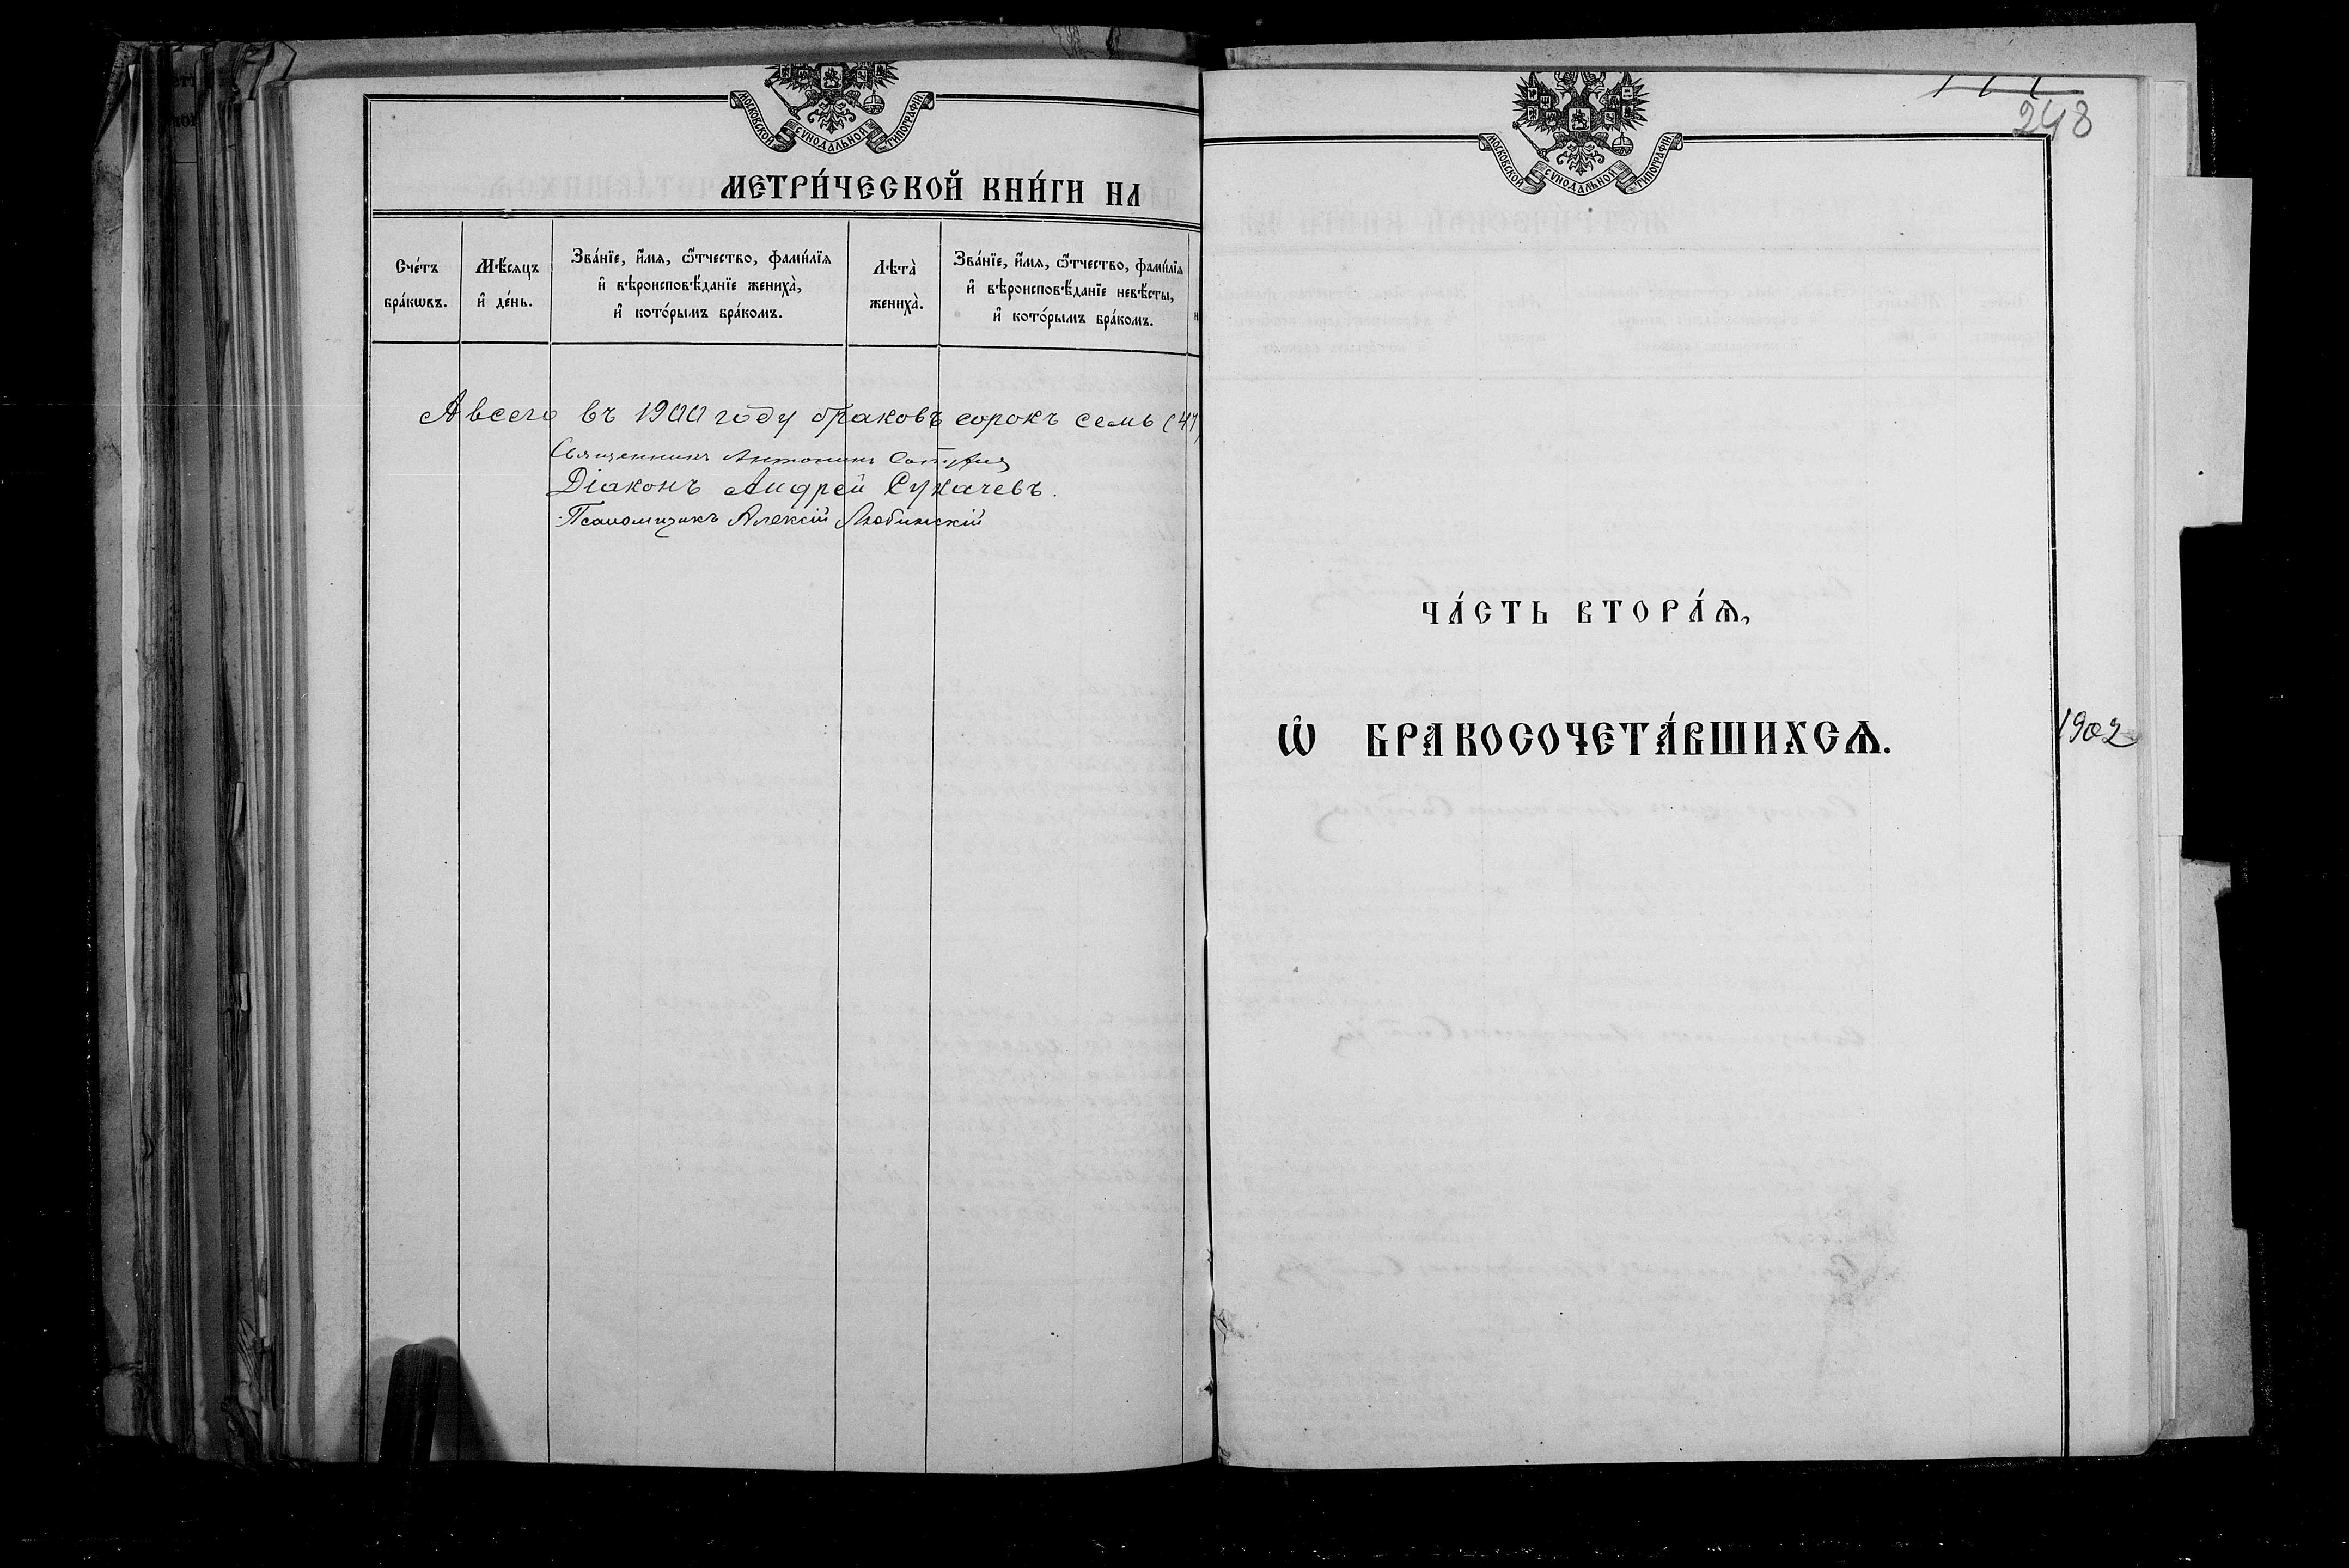 МОСКОВСКОЙ СѴНОДАЛЬНОЙ ТИПОГРАФІИ
МЕТРИ́ЧЕСКОЙ КНИ́ГИ НА
Сче́тъ бра́кѡвъ.
Мѣ́сяцъ и҆ де́нь.
Зва́нїе, и҆́мя, ѻ҆́тчество, фами́лїя
и҆ вѣроисповѣ́данїе жениха̀,
и҆ кото́рымъ бра́комъ.
Лѣта̀ жениха̀.
Зва́нїе, и҆́мя, ѻ҆́тчество, фами́лїя
и҆ вѣроисповѣ́данїе невѣ́сты,
и҆ кото́рымъ бра́комъ.
А всего въ 1900 году браковъ сорокъ семь (47)
Священникъ Антонинъ
Діаконъ Андрей Сукачевъ.
Псаломщикъ Алексій Любинскій
248
МОСКОВСКОЙ СѴНОДАЛЬНОЙ ТИПОГРАФІИ
ЧА́СТЬ ВТОРА́Ѧ,
Ѡ҆ БРАКОСОЧЕТА́ВШИХСѦ.
1902